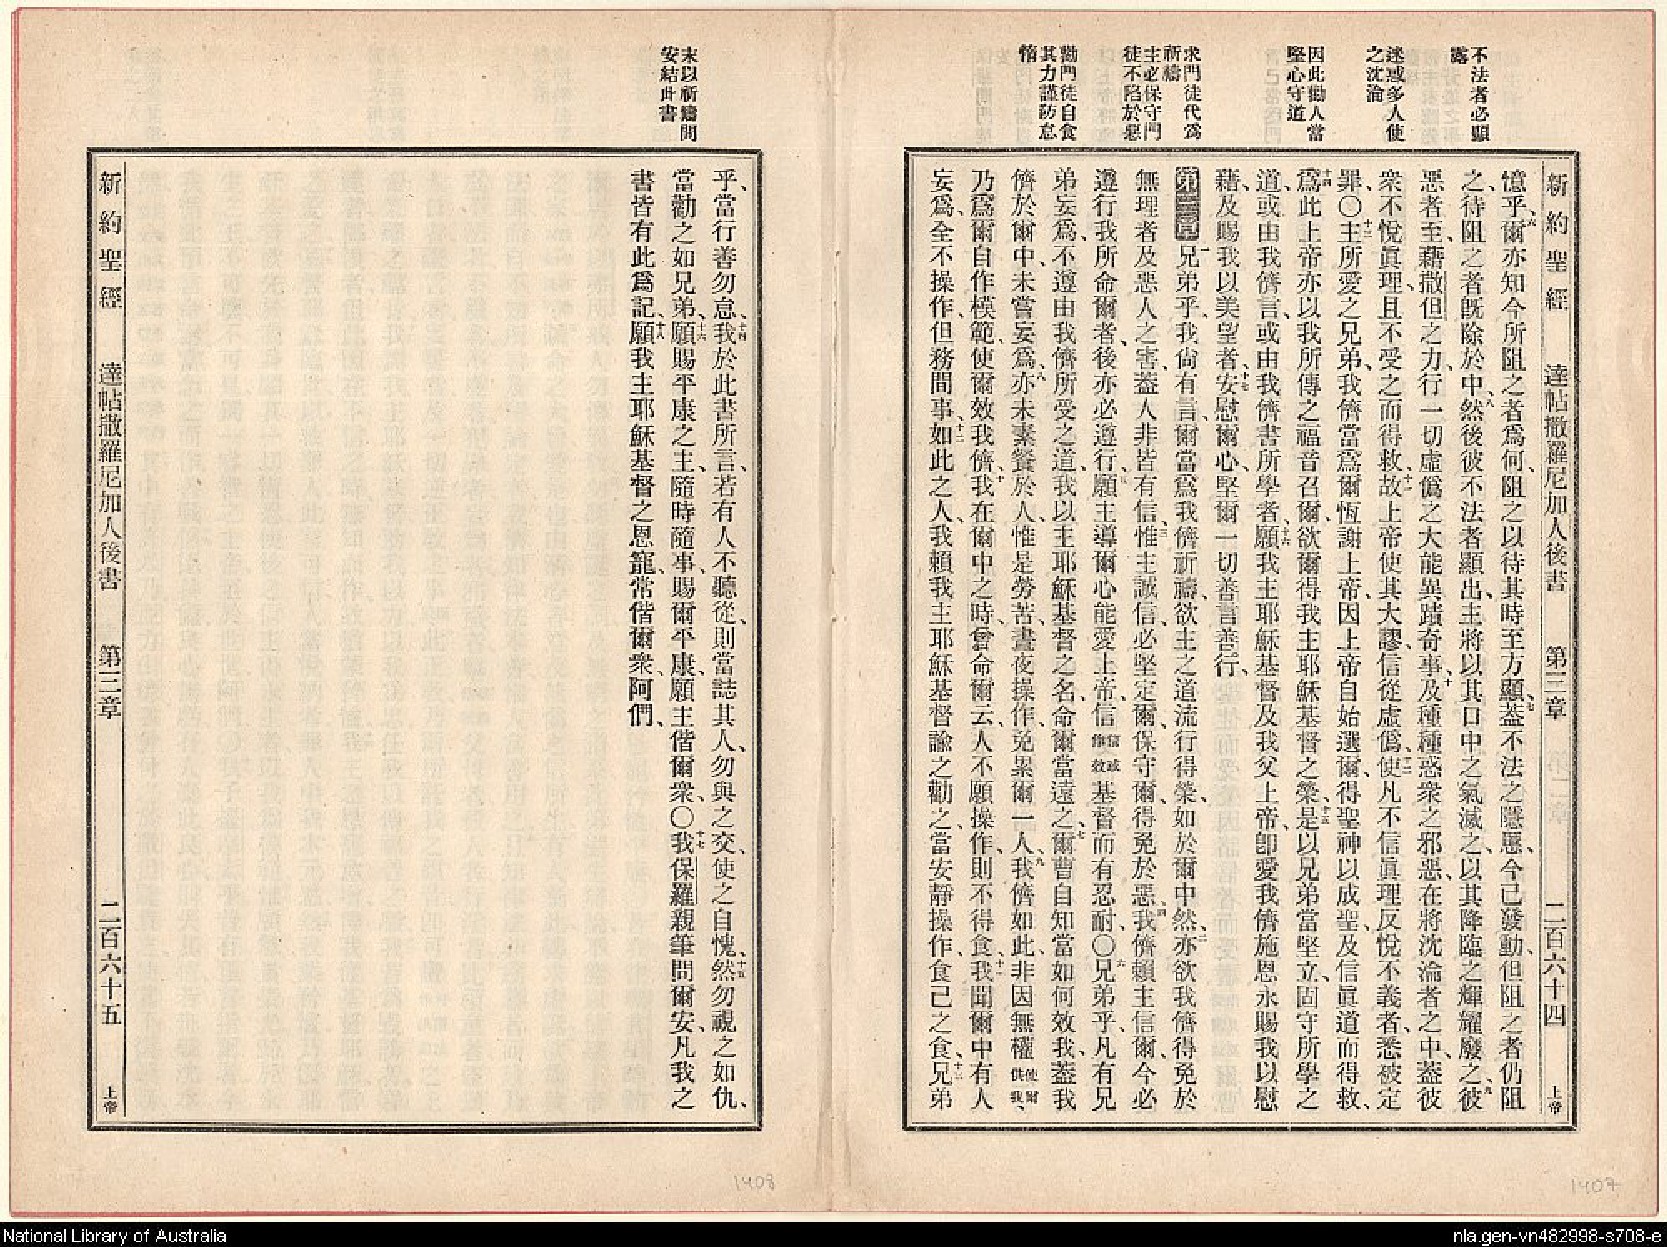 不法者必顯
露
迷惑多人使
之沈淪
因此勸人當
堅心守道
求門徒代爲
祈禱
主必保守門
徒不陷於惡
勸門徒自食
其力謹防怠
惰
新約聖經 達帖撒羅尼加人後書 第三章 二百六十四 上帝
憶乎、六爾亦知今所阻之者爲何、阻之以待其時至方顯、七蓋不法之隱慝、今已發動、但阻之者仍阻
之、待阻之者旣除於中、八然後彼不法者顯出、主將以其口中之氣滅之、以其降臨之輝耀廢之、九彼
惡者至、藉撒但之力、行一切虛僞之大能異蹟奇事、十及種種惑衆之邪惡、在將沈淪者之中、蓋彼
衆不悅眞理、且不受之而得救、十一故上帝使其大謬、信從虛僞、十二使凡不信眞理、反悅不義者、悉被定
罪、〇十三主所愛之兄弟、我儕當爲爾恆謝上帝、因上帝自始選爾、得聖神以成聖、及信眞道而得救、
十四爲此上帝亦以我所傳之福音召爾、欲爾得我主耶穌基督之榮、十五是以兄弟當堅立、固守所學之
道、或由我儕言、或由我儕書所學者、十六願我主耶穌基督、及我父上帝、卽愛我儕施恩永賜我以慰
藉、及賜我以美望者、十七安慰爾心、堅爾一切善言善行、
第三章 一兄弟乎、我尙有言、爾當爲我儕祈禱、欲主之道流行得榮、如於爾中然、二亦欲我儕得免於
無理者及惡人之害、蓋人非皆有信、三惟主誠信、必堅定爾、保守爾、得免於惡、四我儕賴主信爾、今必
遵行我所命爾者、後亦必遵行、五願主導爾心、能愛上帝、信基督而有忍耐、〇六兄弟乎、凡有兄
弟妄爲、不遵由我儕所受之道、我以主耶穌基督之名、命爾當遠之、七爾曹自知當如何效我、蓋我
儕於爾中未嘗妄爲、八亦未素餐於人、惟是勞苦、晝夜操作、免累爾一人、九我儕如此、非因無權使爾供我、
乃爲爾自作模範、使爾效我儕、十我在爾中之時、曾命爾云、人不願操作、則不得食、十一我聞爾中有人
妄爲、全不操作、但務閒事、十二如此之人、我賴我主耶穌基督諭之勸之、當安靜操作、食己之食、十三兄弟
末以祈禱問
安結此書
乎、當行善勿怠、十四我於此書所言、若有人不聽從、則當誌其人、勿與之交、使之自愧、十五然勿視之如仇、
當勸之如兄弟、十六願賜平康之主、隨時隨事、賜爾平康、願主偕爾衆、〇十七我保羅親筆問爾安、凡我之
書皆有此爲記、十八願我主耶穌基督之恩寵、常偕爾衆、阿們、
新約聖經 達帖撒羅尼加人後書 第三章 二百六十五 上帝
1408
1407
National Library of Australia
nla.gen-vn482998-s708-e